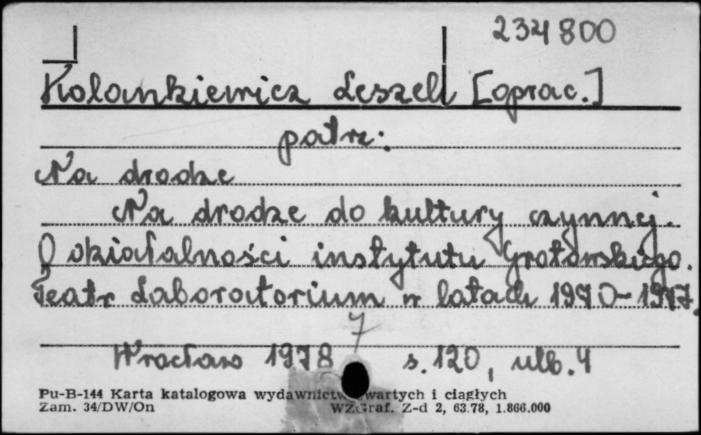 234800
Kolankiewicz Leszek [oprac.]
patrz:
Na drodze
Na drodze do kultury czynnej.
O działalności instytutu Grotowskiego.
Teatr Laboratorium w latach 1970-1977.
Wrocław 1978 s. 120, ulb. 4
Pu-B-144 Karta katalogowa wydawnictw zwartych i ciągłych
Zam. 34/DW/On WZGraf. Z-d 2, 63.78, 1.866.000